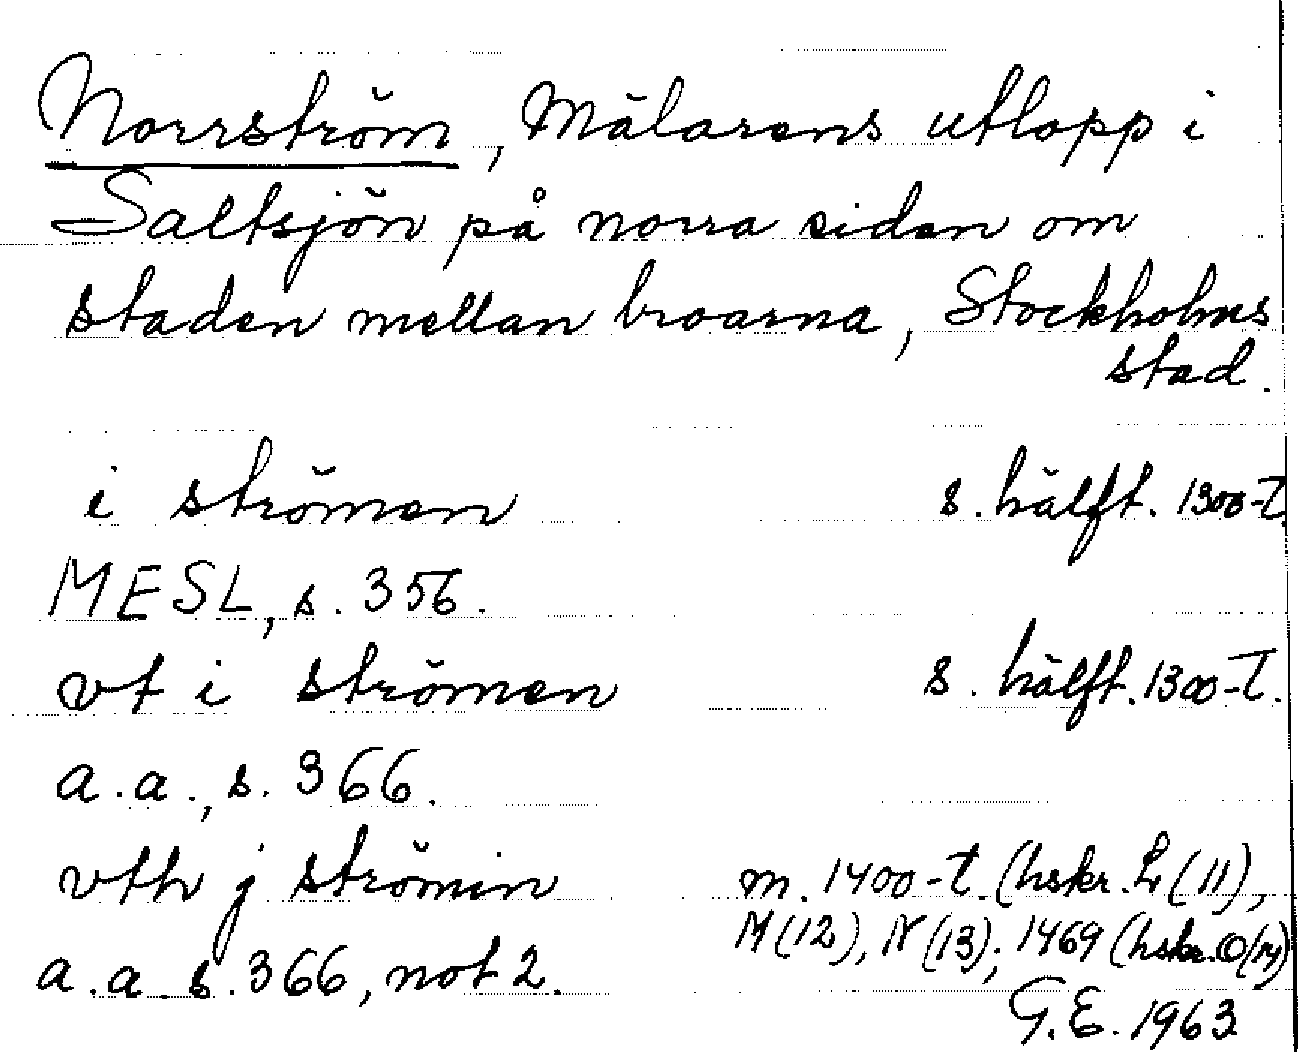 Norrström, Mälarens utlopp i
Saltsjön på norra sidan om
staden mellan broarna, Stockholms
stad.
i strömen s. hälft. 1300-t.
MESL, s. 356.
vt i strömen s. hälft. 1300-t.
a.a., s. 366.
vth j strömin m. 1400-t. (hskr. L (11),
M (12), N (13); 1469 (hskr. O (14)
a.a s. 366, not 2.
G.E. 1963